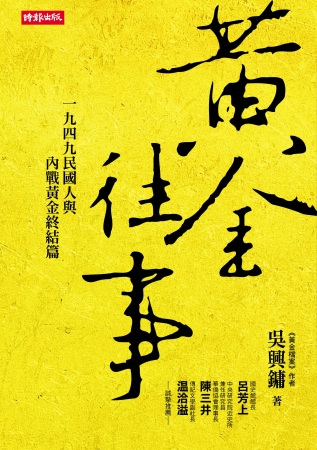 時報出版
黃金往事
一九四九民國人與
內戰黃金終結篇
《黃金檔案》作者
吳興鏞 著
國史館館長
呂芳上
中央研究院近史所
兼任研究員
華僑協會理事長
陳三井
傳記文學副社長
溫洽溢
—誠摯推薦—